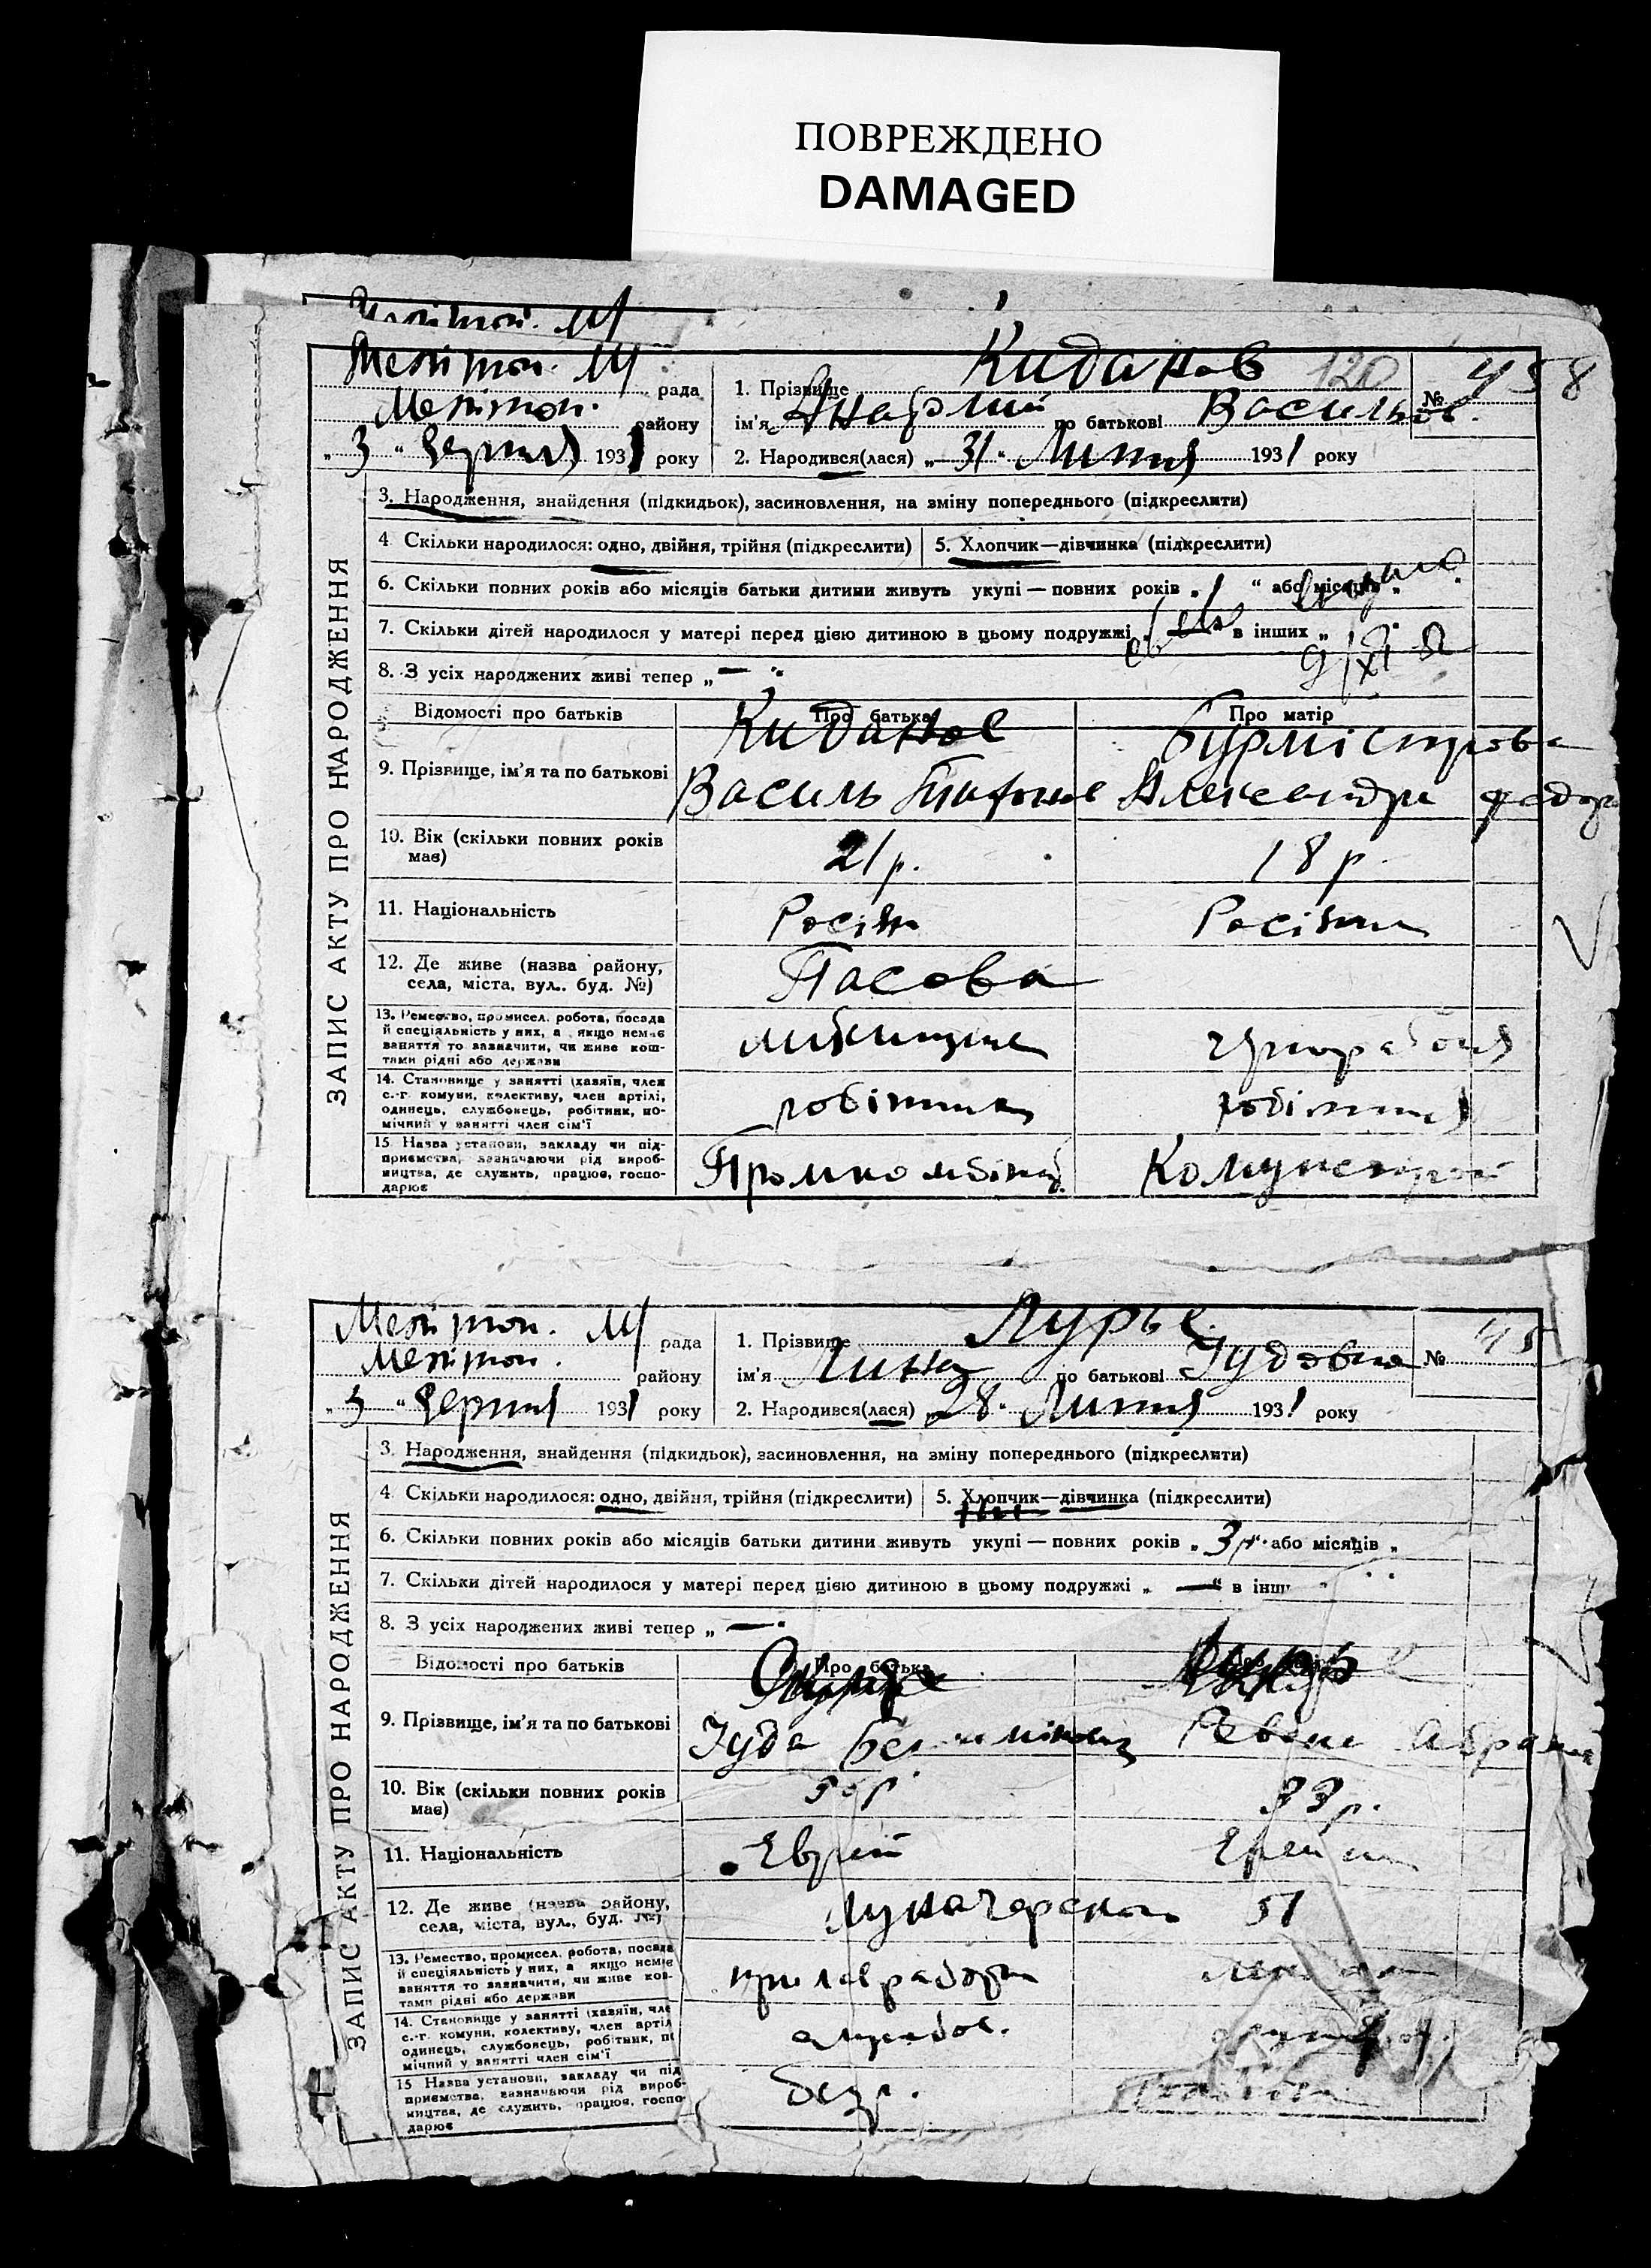 ПОВРЕЖДЕНО
DAMAGED
Мелітоп. М/
Мелітоп. М/ рада
Мелітоп. району
„3“ Серпня 1931 року
1. Прізвище Киданов 120
№ 458
ім'я по батькові Васильов.
2. Народився(лася) „31“ Липня 1931 року
ЗАПИС АКТУ ПРО НАРОДЖЕННЯ
3. Народження, знайдення (підкидьок), засиновлення, на зміну попереднього (підкреслити)
4. Скільки народилося: одно, двійня, трійня (підкреслити) 5. Хлопчик—дівчинка (підкреслити)
6. Скільки повних років або місяців батьки дитини живуть укупі — повних років „1“ або місяців „
7. Скільки дітей народилося у матері перед цією дитиною в цьому подружжі „—“ в інших „
8. З усіх народжених живі тепер „—“
Відомості про батьків Про батька Про матір
9. Прізвище, ім'я та по батькові Киданов Бурмістрова
Василь Александра Федор
10. Вік (скільки повних років має) 21 р. 18 р.
11. Національність Росіян Росіянка
12. Де живе (назва району, села, міста, вул., буд. №)
13. Ремество, промисел, робота, посада й спеціяльність у них, а якщо немає заняття то зазначити, чи живе коштами рідні або держави чорноробоча
14. Становище у занятті (хазяїн, член с.-г. комуни, колективу, член артілі, одинець, службовець, робітник, помічний у занятті член сім'ї робітник робітниця
15. Назва установи, закладу чи підприємства, зазначаючи рід виробництва, де служить, працює, господарює Промкомбінат Комунстрой
Мелітоп. М/ рада
Мелітоп. району
„3“ Серпня 1931 року
1. Прізвище Лурье
№ 45
ім'я Лина по батькові Іудовна
2. Народився(лася) „28“ Липня 1931 року
ЗАПИС АКТУ ПРО НАРОДЖЕННЯ
3. Народження, знайдення (підкидьок), засиновлення, на зміну попереднього (підкреслити)
4. Скільки народилося: одно, двійня, трійня (підкреслити) 5. Хлопчик—дівчинка (підкреслити)
6. Скільки повних років або місяців батьки дитини живуть укупі — повних років „3 р“ або місяців „
7. Скільки дітей народилося у матері перед цією дитиною в цьому подружжі „—“ в інш
8. З усіх народжених живі тепер „—“
Відомості про батьків Про батька
9. Прізвище, ім'я та по батькові
Іуда Ревека Абрам
10. Вік (скільки повних років має) 33 р.
11. Національність Еврей Еврейка
12. Де живе (назва району, села, міста, вул., буд. №) Луначарского 51
13. Ремество, промисел, робота, посада й спеціяльність у них, а якщо немає заняття то зазначити, чи живе коштами рідні або держави
14. Становище у занятті (хазяїн, член с.-г. комуни, колективу, член артіл одинець, службовець, робітник, п мічний у занятті член сім'ї службов.
15 Назва установи, закладу чи під приємства, зазначаючи рід вироб- ництва, де служить, працює, госпо- дарює безр.